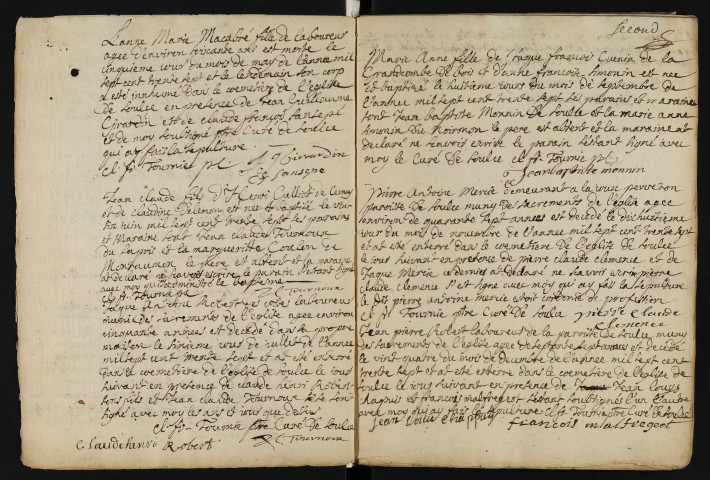 Lanne Marie Macabré fille de laboureur
agee d'environ soixante ans est morte le
cinquieme iour du mois de may de l'annee mil
sept cent trente sept et le lendemain son corp
a esté inhumé dans le cemetiere de l'eglise
de soulce en presence de Jean Guillaume
Girardin et de claude françois sansepé
et de moy soubsigné ptre Curé de soulce
qui ay fait la sepulture
cl. fr. Tournier
J g Girardin
Jean claude fils d'Henri
et de claudine et né et baptisé le
iuin mil sept cent trente sept ses parains
et Maraine sont Jean claude Tournoux
et la marguerite
le pere et absent et la maraine
at declaré ne scavoir escrire le parain s'estant signé
avec moy qui administré le baptesme
cl. fr. Tournier
J. c. Tournoux
Robert de laboureur
munis des sacrements de l'eglise agee d'environ
cinquante annees et decedé dans sa propre
maison le sixieme iour de iuillet de l'annee
mil sept cent trente sept et at esté enterré
dans le cemetiere de l'eglise de soulce le iour
suivant en presence de claude henri Robert
son fils et de Jean claude Tournoux se sont
signé avec moy les ans et iour que dessus
cl. fr. Tournier ptre Curé de soulce
Claude henri Robert
J. c. Tournoux
second
Marie Anne fille de françois Cuenin de la
Grandcombe de bois et d'anne françoise Simonin est nee
et baptisé le huitieme iour du mois de septembre de
l'annee mil sept cent trente sept ses parains et maraine
sont Jean baptiste Monnin de soulce et la marie anne
Simonin du Noirmon le pere est absent et la maraine at
declaré ne scavoir escrire le parain s'estant signé avec
moy le Curé de soulce cl. fr. Tournier
Jean baptiste monnin
Pierre Antoine Mercie demeurant a la
paroisse de soulce muny des sacrements de l'eglise agee
environt de quarante sept annees est decedé le dixhuitieme
iour du mois de novembre de l'annee mil sept cent trente sept
et at esté enterré dans le cemetiere de l'eglise de soulce
le iour suivant en presence de pierre claude clemence et de
Jaque Mercie ce dernier at declaré ne scavoir escrire pierre
claude clemence s'est signé avec moy qui ay fait la sepulture
le dit pierre antoine mercie estoit de profession
cl. fr. Tournier ptre Curé de soulce pierre claude
clemence
Jean pierre Robert laboureur de la paroisse de soulce muny
des sacrements de l'eglise agee de septante sept annees et decedé
le vint quatre du mois de decembre de l'annee mil sept cent
trente sept et at esté enterré dans le cemetiere de l'eglise de
soulce le iour suivant en presence de Jean Louys
Chapuis et françois malfregeot s'estant soubsignés l'un l'autre
avec moy qui ay fait la sepulture cl. fr. Tournier ptre Curé de soulce
Jean Louis Chapuis
francois malfregeot